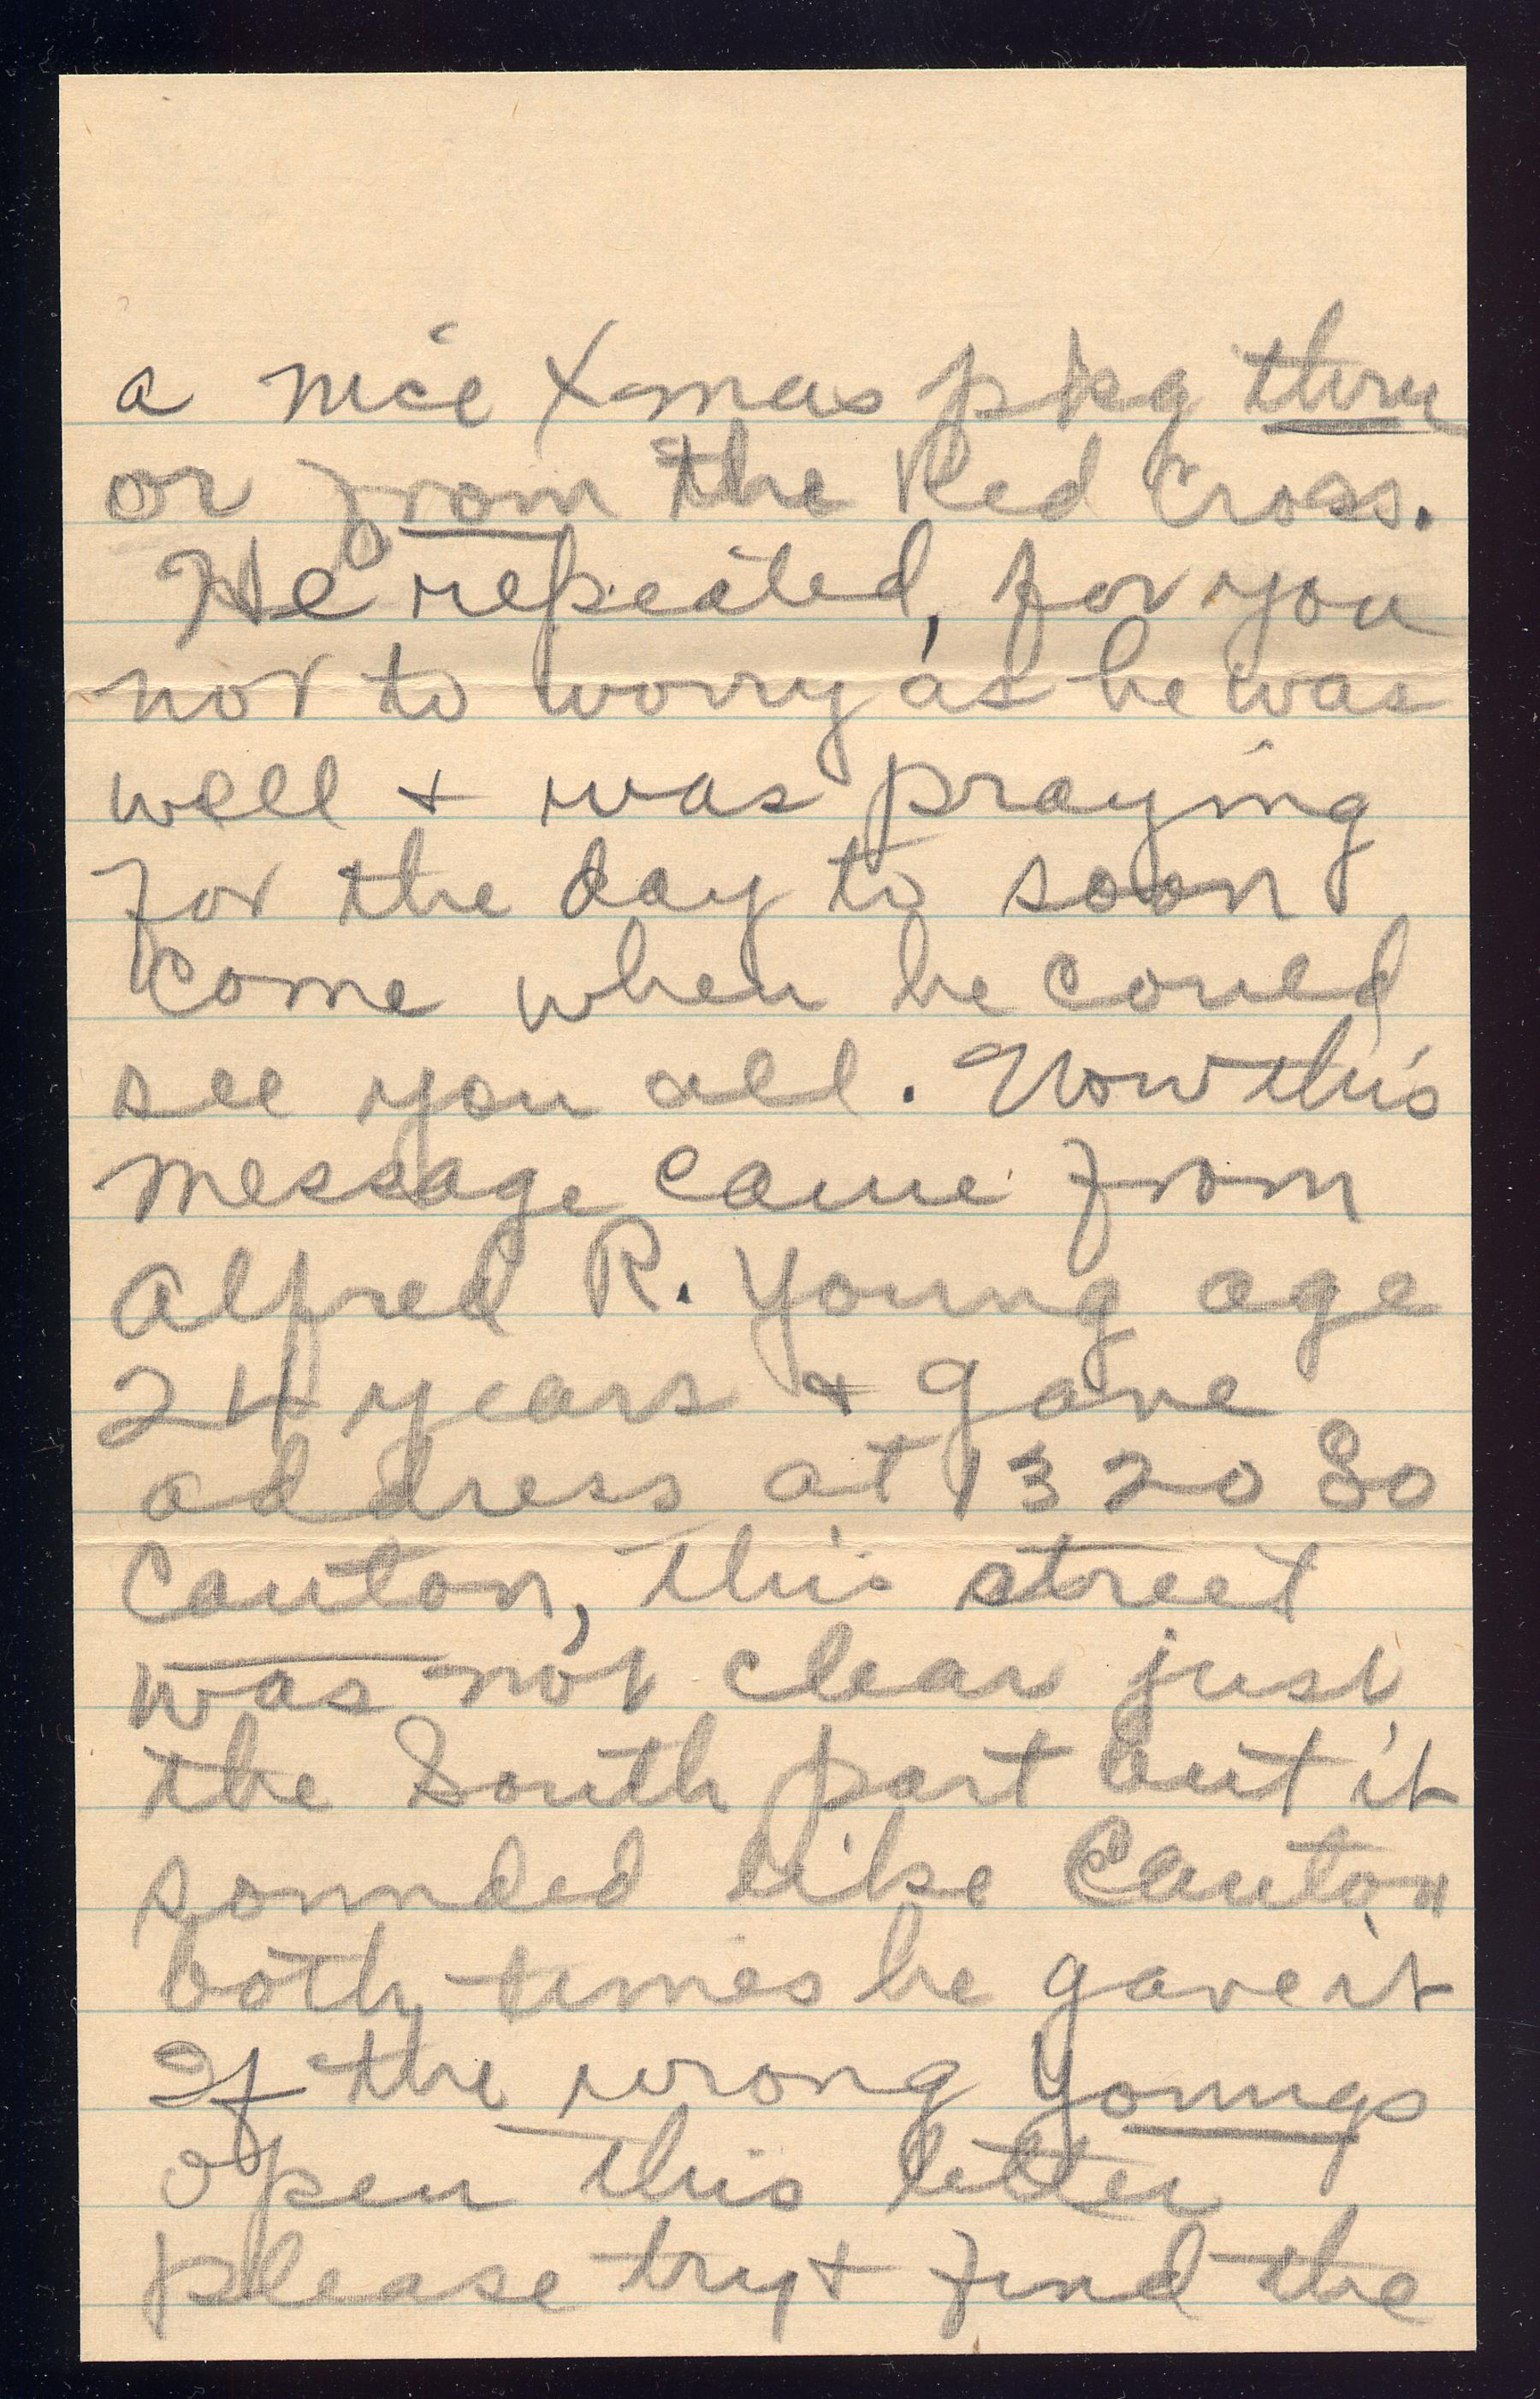 a nice Xmas pkg thru
or from the Red Cross.
He repeated, for you
not to worry as he was
well + was praying
for the day to soon
come when he could
see you all. Now this
message came from
Alfred R. Young age
24 years + gave
address at 1320 So
Canton, this street
was not clear just
the South part but it
sounded like Canton
both times he gave it
If the wrong Youngs
open this letter
please try + find the